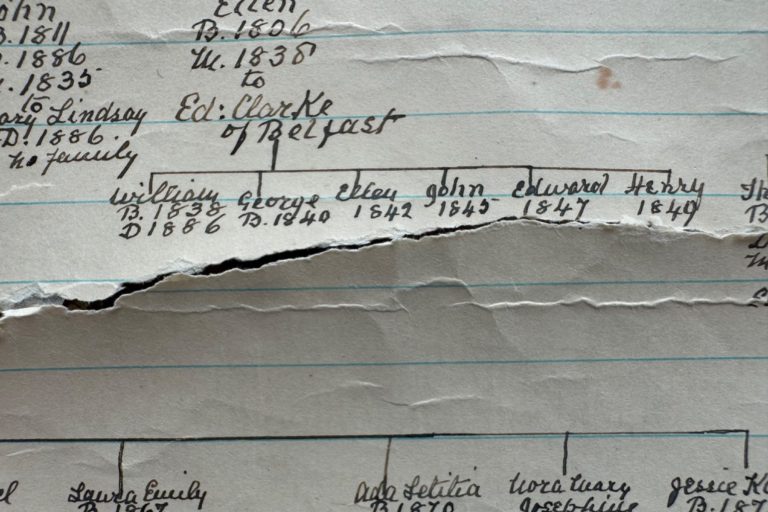 John
B. 1811
D. 1886
M. 1835
to
Mary Lindsay
D. 1886.
no family
Ellen
B. 1806
M. 1835
to
Ed: Clarke
of Belfast
William
B. 1838
D 1886
George
B. 1840
Ellen
1842
John
1845
Edward
1847
Henry
1849
Laura Emily
B. 1867
Ada Letitia
B 1870
Nora Mary
Josephine
Jessie
B. 187